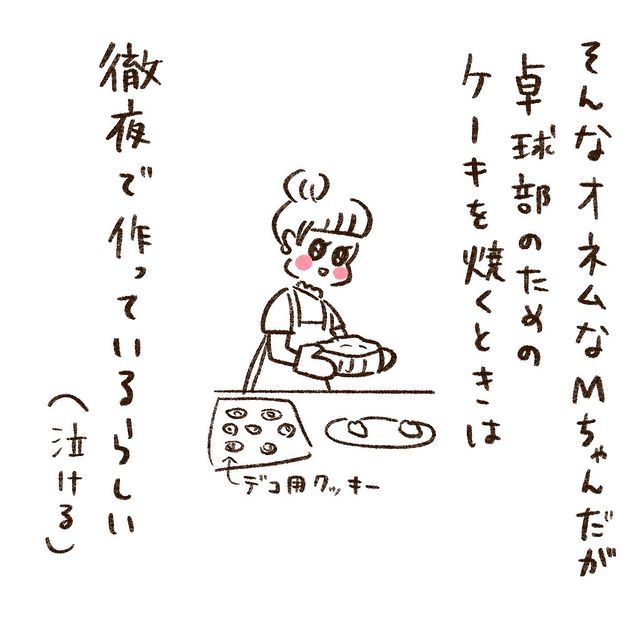 そんなオネムなMちゃんだが
卓球部のための
ケーキを焼くときは
デコ用クッキー
徹夜で作っているらしい
（泣ける）